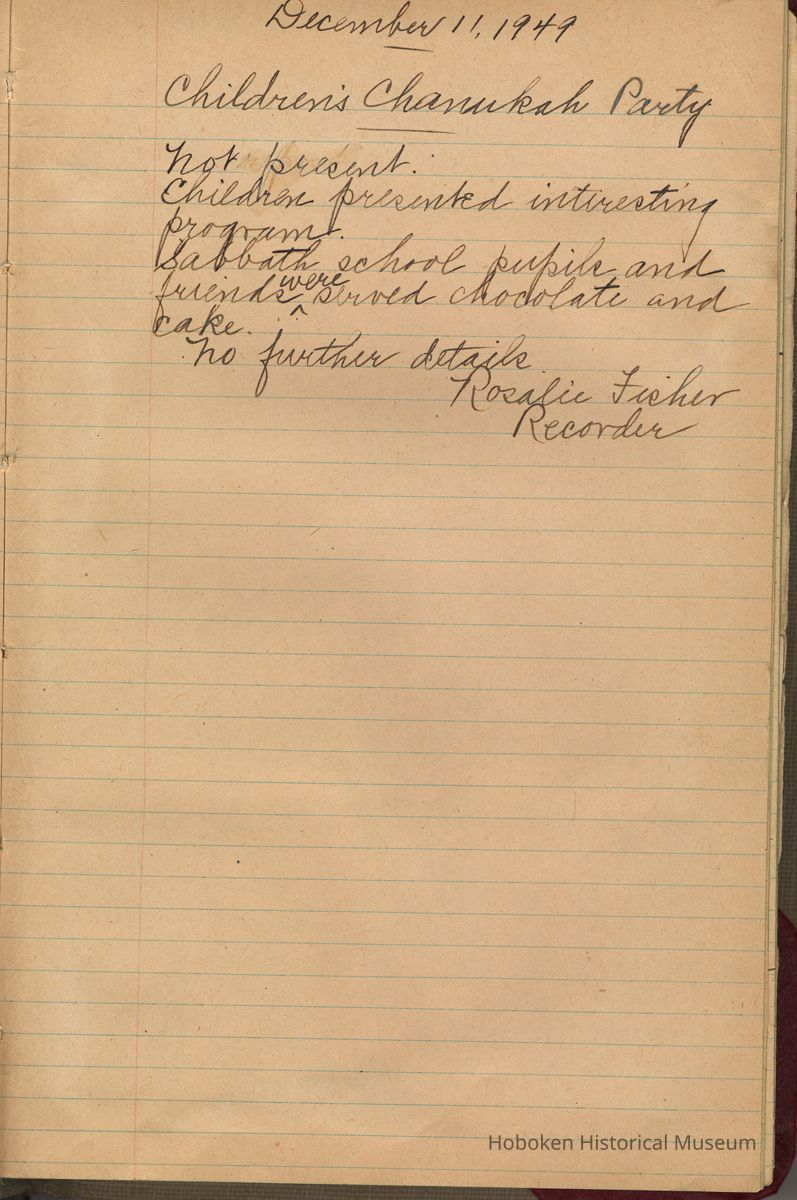 December 11, 1949
Children's Chanukah Party
Not present.
Children presented interesting
program.
Sabbath school pupils and
friends were served chocolate and
cake.
No further details
Rosalie Fisher
Recorder
Hoboken Historical Museum